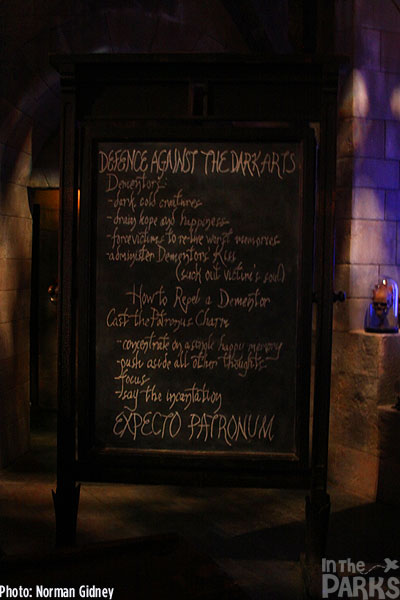 DEFENCE AGAINST THE DARK ARTS
Dementors
-dark, cold creatures
-drain hope and happiness
-force victims to re-live worst memories
administer Dementor's Kiss
(suck out victim's soul)
-How to Repel a Dementor
Cast the Patronus Charm
-concentrate on a single happy memory
-push aside all other thoughts
focus
-say the incantation
EXPECTO PATRONUM
IN THE
PARKS
Photo: Norman Gidney